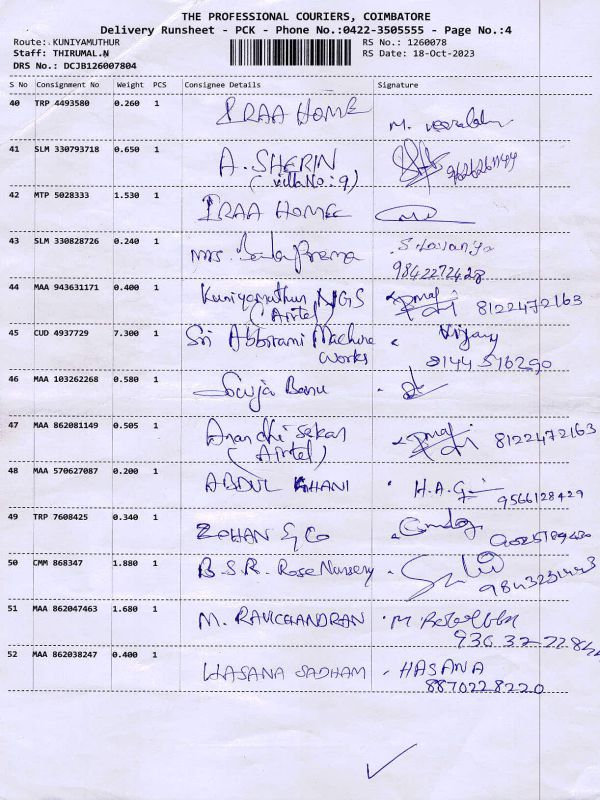 THE PROFESSIONAL COURIERS, COIMBATORE
Delivery Runsheet - PCK - Phone No.:0422-3505555 - Page No.:4
Route:.KUNIYAMUTHUR RS No.: 1260078
Staff: THIRUMAL.N RS Date: 18-Oct-2023
DRS No.: DCJB126007804
S No Consignment No Weight PCS Consignee Details Signature
40 TRP 4493580 0.260 1 IRAA HOME M.
41 SLM 330793718 0.650 1 A. SHERIN
(villa No: 9)
42 MTP 5028333 1.530 1 IRAA HOME
43 SLM 330828726 0.240 1 Mrs. Bala Prema S. Lavanya
9842272428
44 MAA 943631171 0.400 1 Kuniyamuthur NGS 8122472163
(Airtel)
45 CUD 4937729 7.300 1 Sri Abbirami Machine Vijay
Works 9144516290
46 MAA 103262268 0.580 1 Banu
47 MAA 862081149 0.505 1 Anandhi Sekar 8122472163
(Airtel)
48 MAA 570627087 0.200 1 ABDUL GHANI H.A.G
9566128429
49 TRP 7608425 0.340 1 ZOHAN & Co
50 CMM 868347 1.880 1 B.S.R. Rose Nursery 9843231443
51 MAA 862047463 1.680 1 M. RAVICHANDRAN M
52 MAA 862038247 0.400 1 HASANA SADHAM HASANA
8870228220